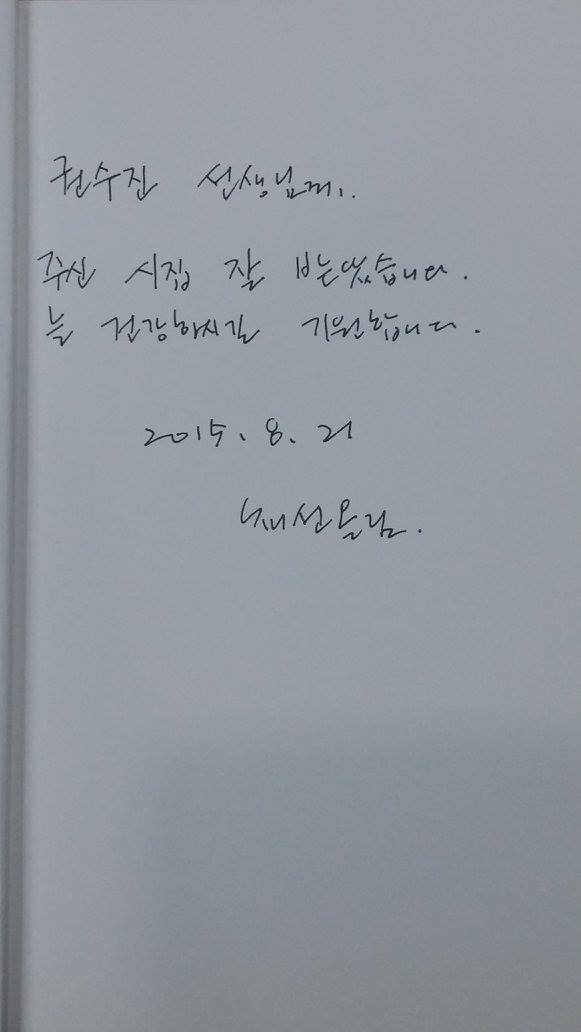 권수진 선생님께.
주신 시집 잘 받았습니다.
늘 건강하시길 기원합니다.
2015. 8. 21
올림.